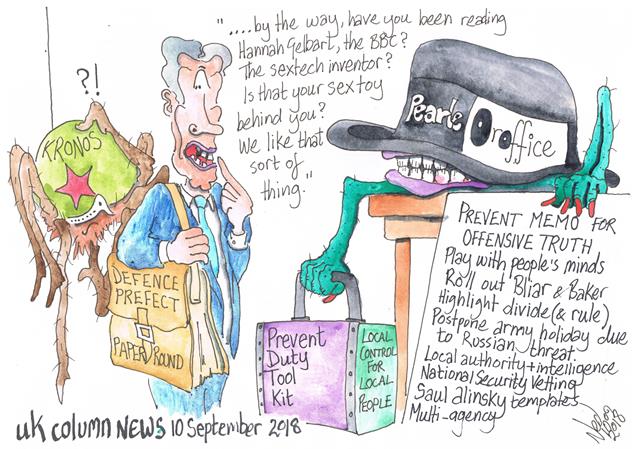 "....by the way, have you been reading
Hannah Gelbart, the BBC?
The sextech inventor?
Is that your sex toy
behind you?
We like that
sort of
thing."
?!
KRONOS
DEFENCE
PREFECT
PAPER ROUND
Pearl
Oroffice
Prevent
Duty
Tool
Kit
LOCAL
CONTROL
FOR
LOCAL
PEOPLE
PREVENT MEMO FOR
OFFENSIVE TRUTH
Play with people's minds
Roll out Bliar & Baker
Highlight divide (& rule)
Postpone army holiday due
to Russian threat.
Local authority + intelligence
National Security Vetting
Saul alinsky templates
Multi-agency
2018
uk column NEWS 10 September 2018